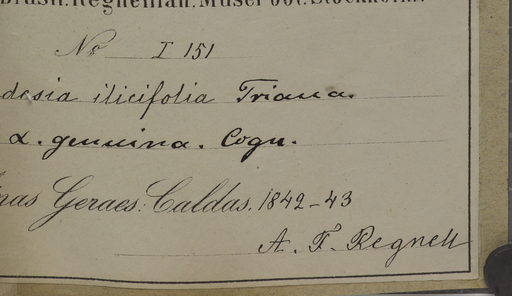 Brasil. Regnellian. Musei bot. Stockholm.
№ I 151
desia ilicifolia Triana.
α. genuina. Cogn.
nas Geraes: Caldas. 1842-43
A. F. Regnell